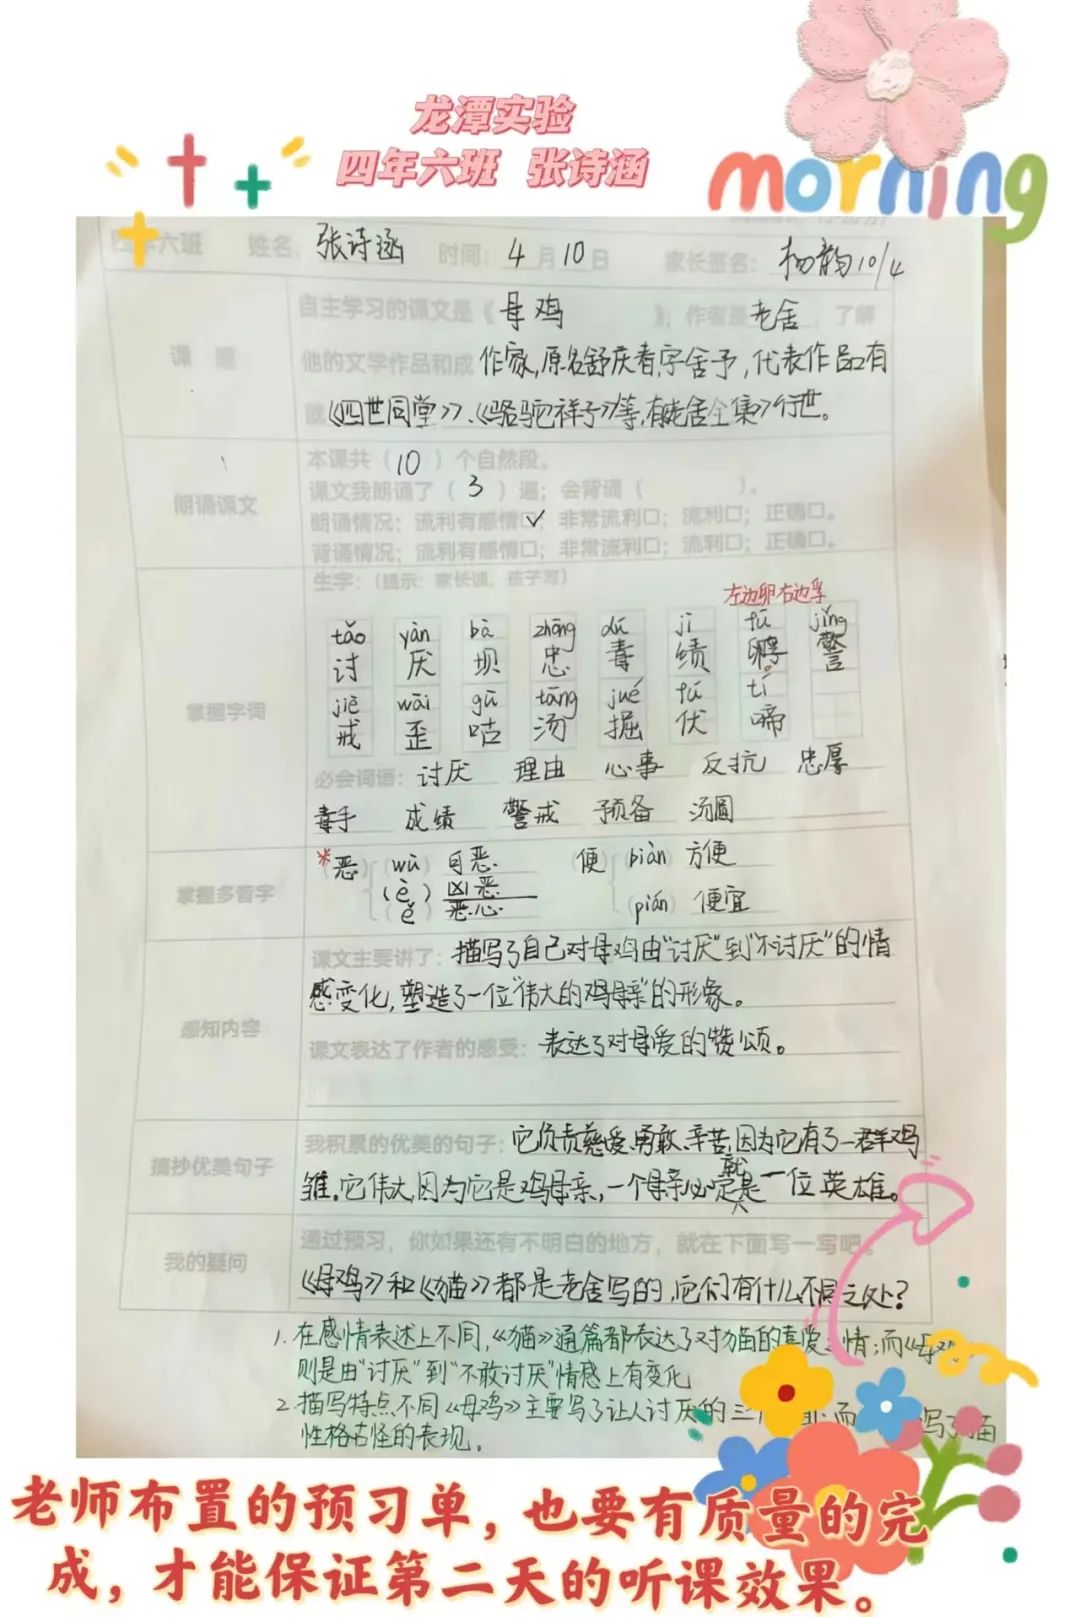 龙潭实验
四年六班 张诗涵
morning
四年六班 姓名：张诗涵 时间：4月10日 家长签名：杨韵10/4
课题
自主学习的课文是《母鸡》；作者是老舍，了解
他的文学作品和成 作家，原名舒庆春，字舍予，代表作品有
就《四世同堂》、《骆驼祥子》等，有《老舍全集》行世。
朗诵课文
本课共（10）个自然段。
课文我朗诵了（3）遍；会背诵（ ）。
朗诵情况：流利有感情☑；非常流利口；流利口；正确口。
背诵情况：流利有感情口；非常流利口；流利口；正确口。
掌握字词
生字：（提示：家长读，孩子写）
左边卵右边孚
tǎo yàn bà zhōng dú jì fū jǐng
讨 厌 坝 忠 毒 绩 孵 警
jiè wāi gū tāng jué fú tí
戒 歪 咕 汤 掘 伏 啼
必会词语：讨厌 理由 心事 反抗 忠厚
毒手 成绩 警戒 预备 汤圆
掌握多音字
*恶 （wù）可恶 便（biàn）方便
（è）凶恶
（ě）恶心 （pián）便宜
感知内容
课文主要讲了：描写了自己对母鸡由“讨厌”到“不讨厌”的情
感变化，塑造了一位“伟大的鸡母亲”的形象。
课文表达了作者的感受：表达了对母爱的赞颂。
摘抄优美句子
我积累的优美的句子：它负责、慈爱、勇敢、辛苦，因为它有了一群鸡
雏。它伟大，因为它是鸡母亲，一个母亲必定就是一位英雄。
我的疑问
通过预习，你如果还有不明白的地方，就在下面写一写吧。
《母鸡》和《猫》都是老舍写的，它们有什么不同之处？
1.在感情表述上不同，《猫》通篇都表达了对猫的喜爱之情；而《母鸡
则是由“讨厌”到“不敢讨厌”情感上有变化
2.描写特点不同《母鸡》主要写了让人讨厌的三 而 写了猫
性格古怪的表现。
老师布置的预习单，也要有质量的完
成，才能保证第二天的听课效果。